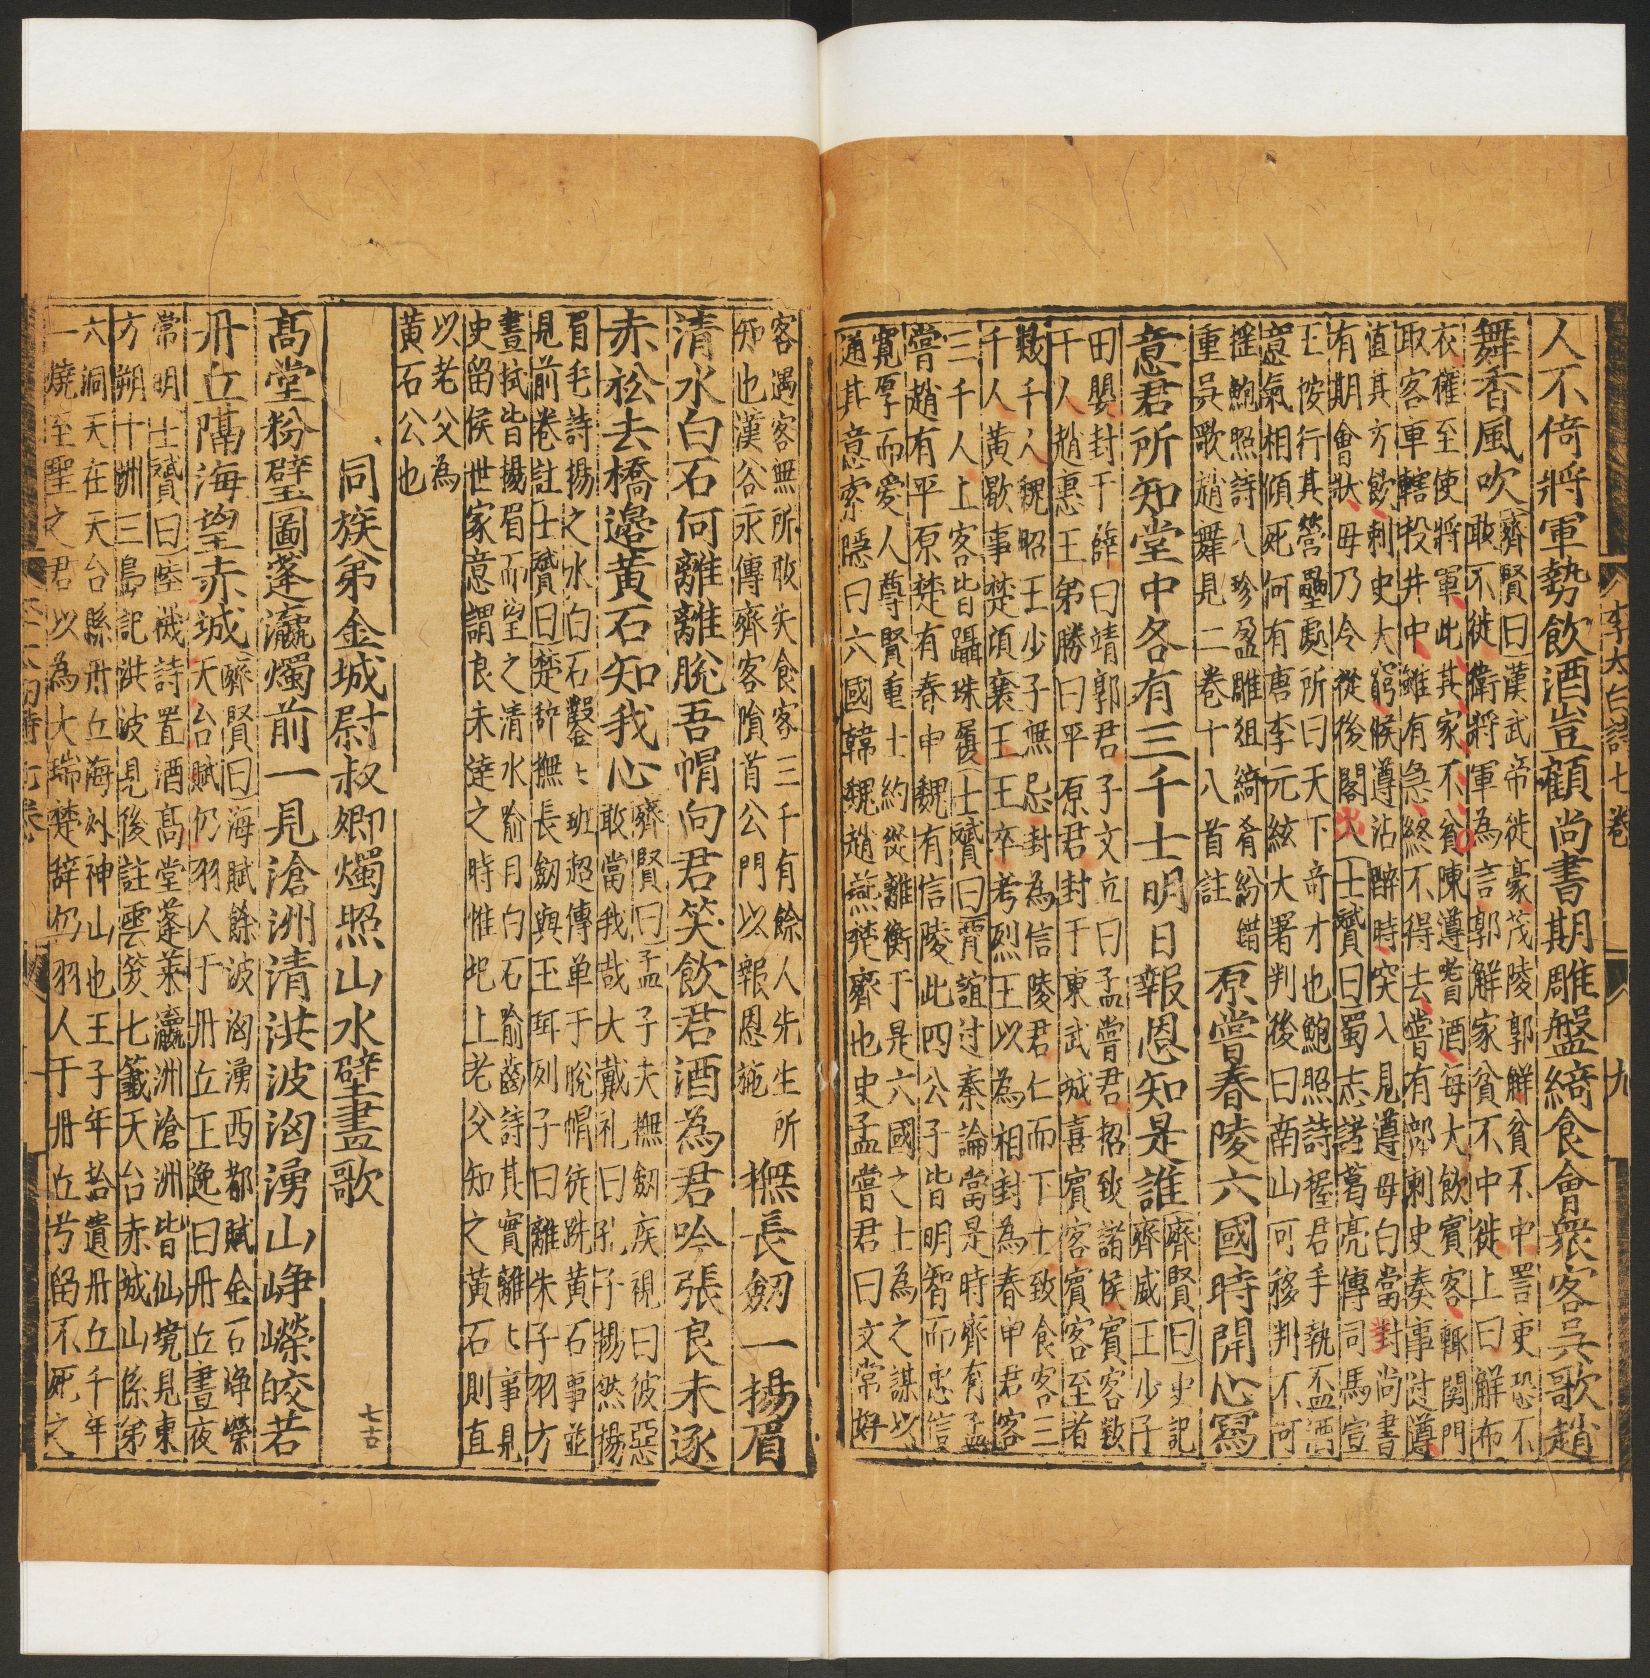 人不倚將軍勢飲酒豈顧尚書期雕盤綺食會衆客吳歌趙
舞香風吹
齊賢曰漢武帝徙豪茂陵郭解貧不中訾吏恐不
敢不徙衛將軍為言郭解家貧不中徙上曰解布
衣權至使將軍此其家不貧陳遵嗜酒每大飲賓客輒関門
取客車轄投井中雖有急終不得去嘗有部刺史奏事过遵
值其方飲刺史大窮候遵沾醉時突入見遵母白當對尚書
有期會狀母乃令從後閣出士贇曰蜀志諸葛亮傳司馬宣
王按行其營壘處所曰天下竒才也鮑照詩握君手執盃酒
意氣相傾死何有唐李元絃大署判後曰南山可移判不可
揺鮑照詩八珍盈雕俎綺肴紛錯
重吳歌趙舞見二巻十八首註
原嘗春陵六國時開心寫
意君所知堂中各有三千士明日報恩知是誰
齊賢曰史記
齊威王少子
田嬰封于薛曰靖郭君子文立曰孟嘗君招致諸侯賓客致
千人趙惠王弟勝曰平原君封于東武城喜賓客賓客至者
数千人魏昭王少子無忌封為信陵君仁而下士致食客三
千人黃歇事楚頃襄王王卒考烈王以為相封為春申君客
三千人上客皆躡珠履士贇曰賈誼过秦論當是時齊有孟
嘗趙有平原楚有春申魏有信陵此四公子皆明智而忠信
寬厚而愛人尊賢重士約從離衡于是六國之士為之謀以
通其意索隱曰六國韓魏趙燕楚齊也史孟嘗君曰文常好
客遇客無所敢失食客三千有餘人先生所
知也漢谷永傳齊客隕首公門以報恩施
撫長劒一揚眉
清水白石何離離脫吾帽向君笑飲君酒為君吟張良未逐
赤松去橋邉黃石知我心
齊賢曰孟子夫撫劒疾視曰彼惡
敢當我哉大戴礼曰孔子揚然揚
眉毛詩揚之水白石鑿〻班超傳单于脫帽徒跣黃石事並
見前巻註士贇曰楚辞撫長劒與玉珥列子曰離朱子羽方
晝拭眥揚眉而望之清水喻月白石喻齒詩其實離〻事見
史留侯世家意謂良未達之時惟圯上老父知之黃石則直
以老父為
黃石公也
同族弟金城尉叔卿燭照山水壁畫歌
七古
高堂粉壁圖蓬瀛燭前一見滄洲清洪波洶湧山崢嶸皎若
丹丘隔海望赤城
齊賢曰海賦餘波洶湧西都賦金石崢嶸
天台賦仍羽人于丹丘王逸曰丹丘晝夜
常明士贇曰陸機詩置酒高堂蓬萊瀛洲滄洲皆仙境見東
方朔十洲三島記洪波見後註雲笈七籤天台赤城山係第
六洞天在天台縣丹丘海外神山也王子年拾遺丹丘千年
一燒至聖之君以為大瑞楚辞仍羽人于丹丘兮留不死之
李太白詩七巻
九